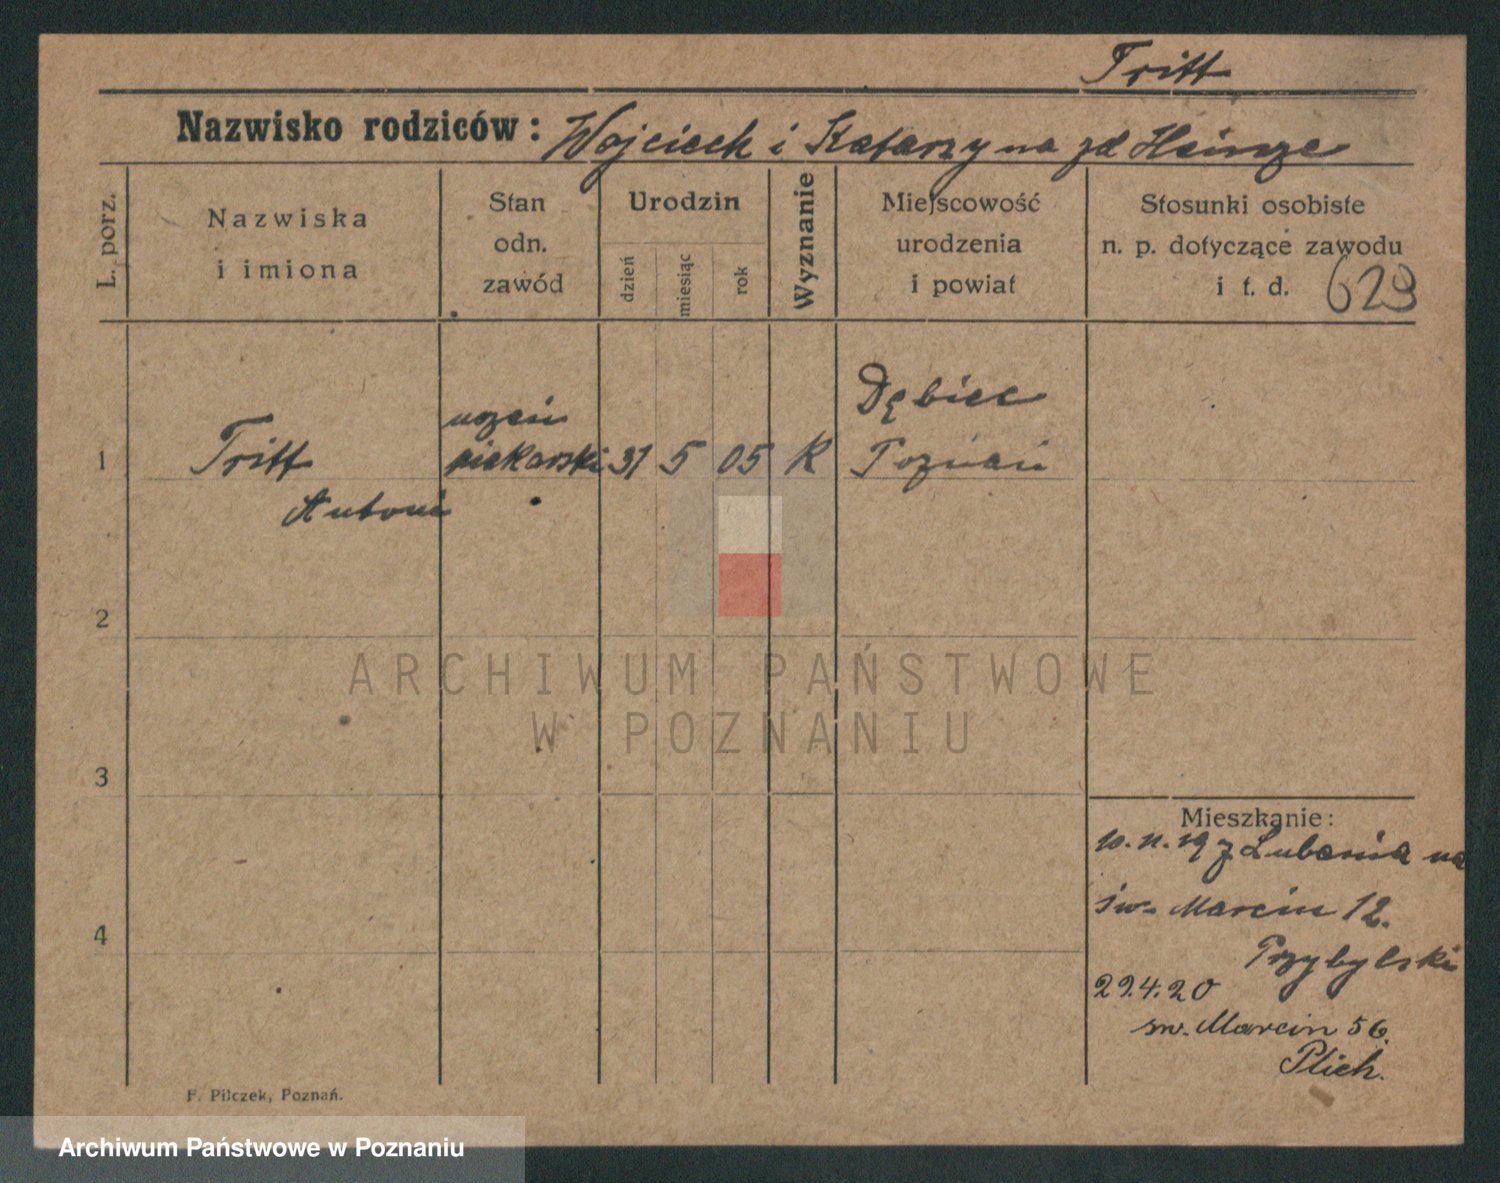 Tritt
Nazwisko rodziców: Wojciech i Katarzyna zd Heinze
L. porz.
Nazwiska
i imiona
Stan
odn.
zawód
Urodzin
dzień
miesiąc
rok
Wyznanie
Miejscowość
urodzenia
i powiat
Stosunki osobiste
n. p. dotyczące zawodu
i t. d.
629
1
Tritt
Antoni
uczeń
piekarski
31
5
05
K
Dębiec
Poznań
2
3
4
ARCHIWUM PAŃSTWOWE
W POZNANIU
Mieszkanie:
10.11.19 z Lubonia na
św. Marcin 12.
Przybylski
29.4.20
św. Marcin 56.
Plich.
F. Pilczek, Poznań.
Archiwum Państwowe w Poznaniu